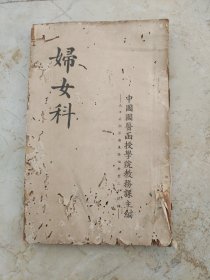 婦女科
中國國醫函授學院教務課主編